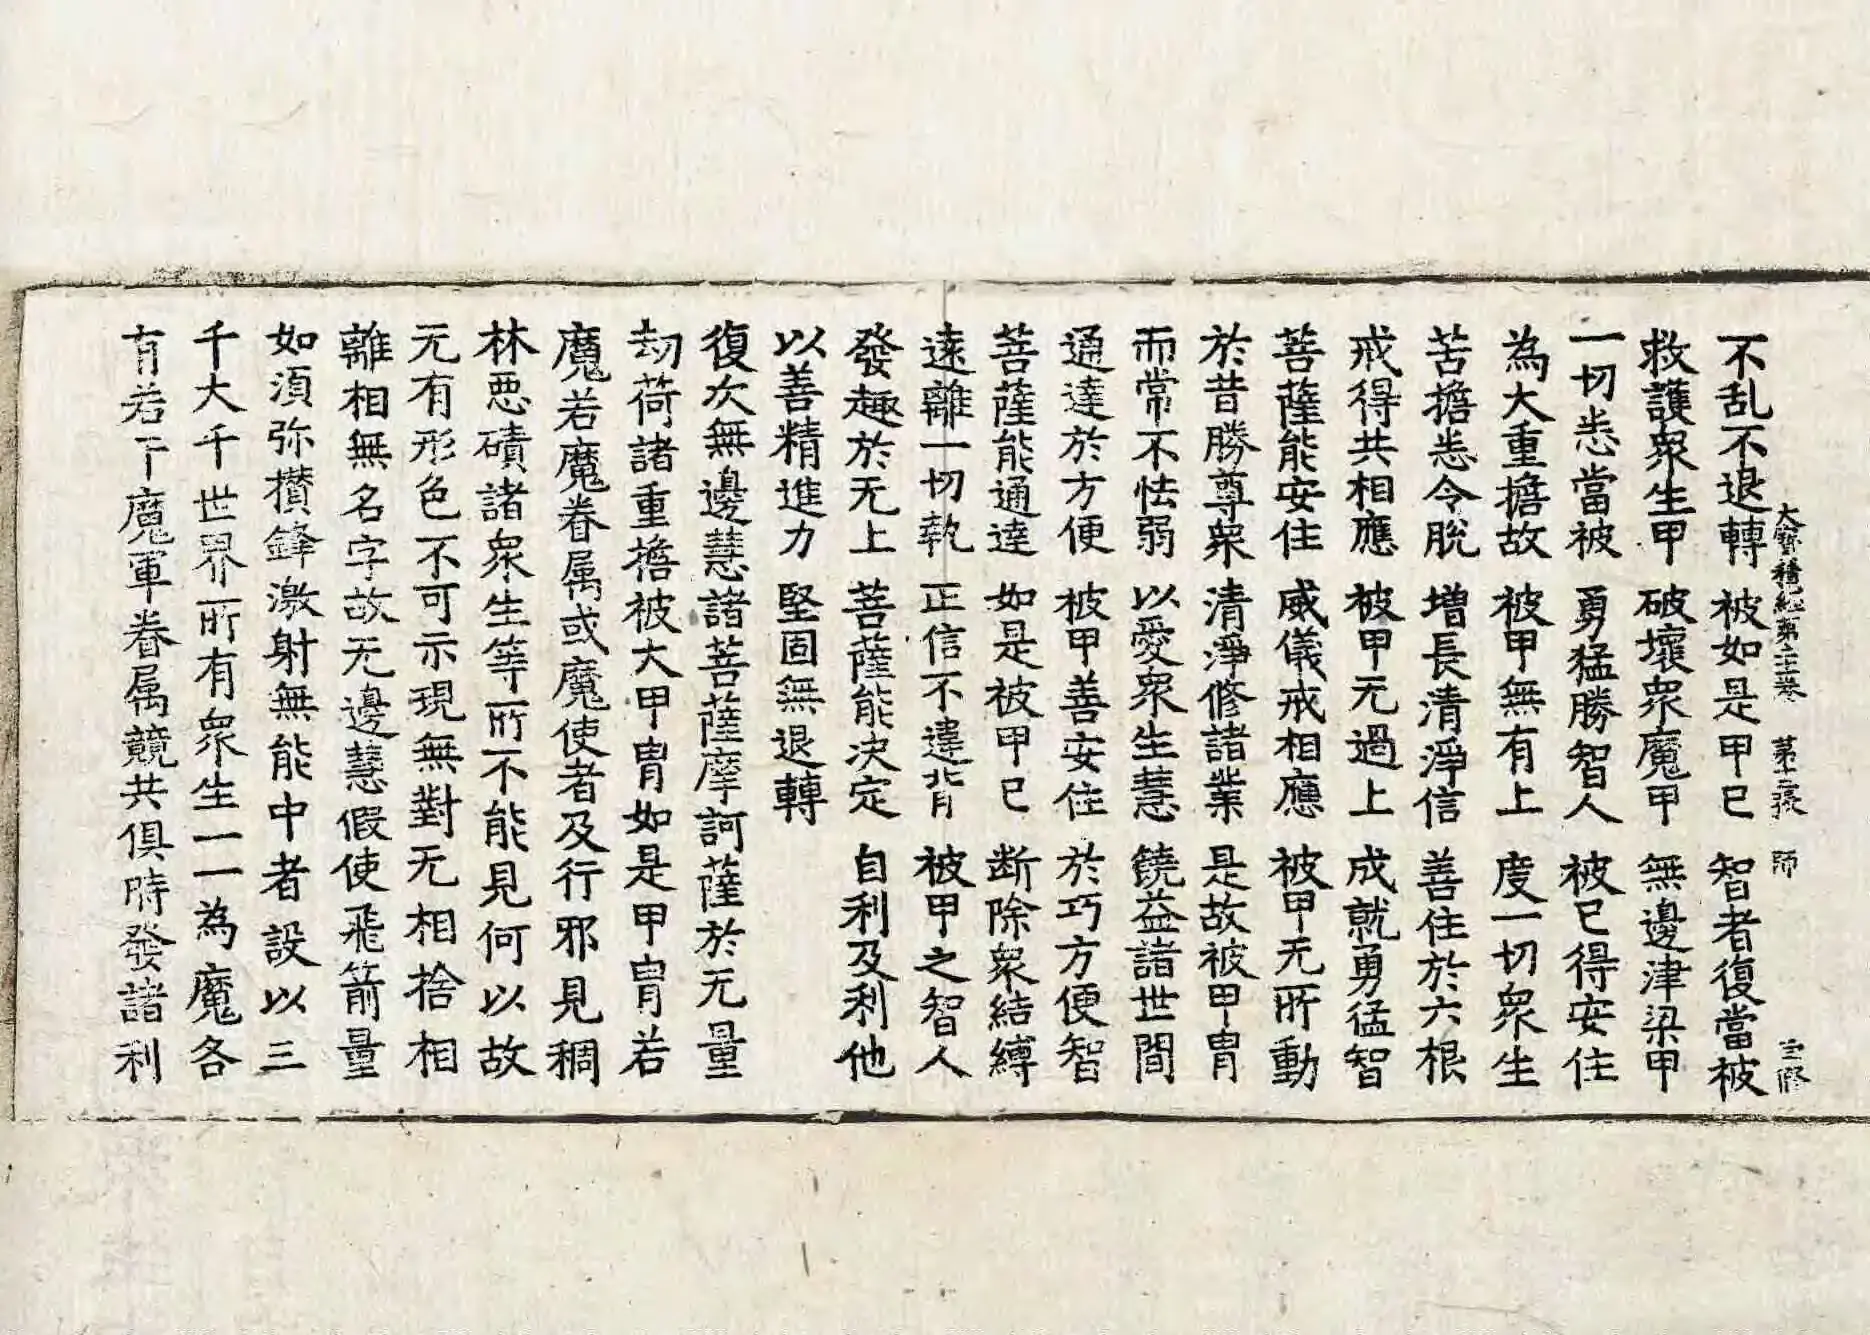 大寶積經第二十一卷 第二張 師
不乱不退轉 被如是甲已 智者復當被
救護眾生甲 破壞眾魔甲 無邊津梁甲
一切悉當被 勇猛勝智人 被已得安住
為大重擔故 被甲無有上 度一切眾生
苦擔悉令脫 增長清淨信 善住於六根
戒得共相應 被甲无過上 成就勇猛智
菩薩能安住 威儀戒相應 被甲无所動
於昔勝尊眾 清淨修諸業 是故被甲胄
而常不怯弱 以愛眾生慧 饒益諸世間
通達於方便 被甲善安住 於巧方便智
菩薩能通達 如是被甲已 断除眾結縛
遠離一切執 正信不違背 被甲之智人
發趣於无上 菩薩能决定 自利及利他
以善精進力 堅固無退轉
復次無邊慧諸菩薩摩訶薩於无量
劫荷諸重擔被大甲胄如是甲胄若
魔若魔眷属或魔使者及行邪見稠
林惡磧諸眾生等所不能見何以故
无有形色不可示現無對无相捨相
離相無名字故无邊慧假使飛箭量
如湏弥攢鋒激射無能中者設以三
千大千世界所有眾生一一為魔各
有若干魔軍眷属競共俱時發諸利